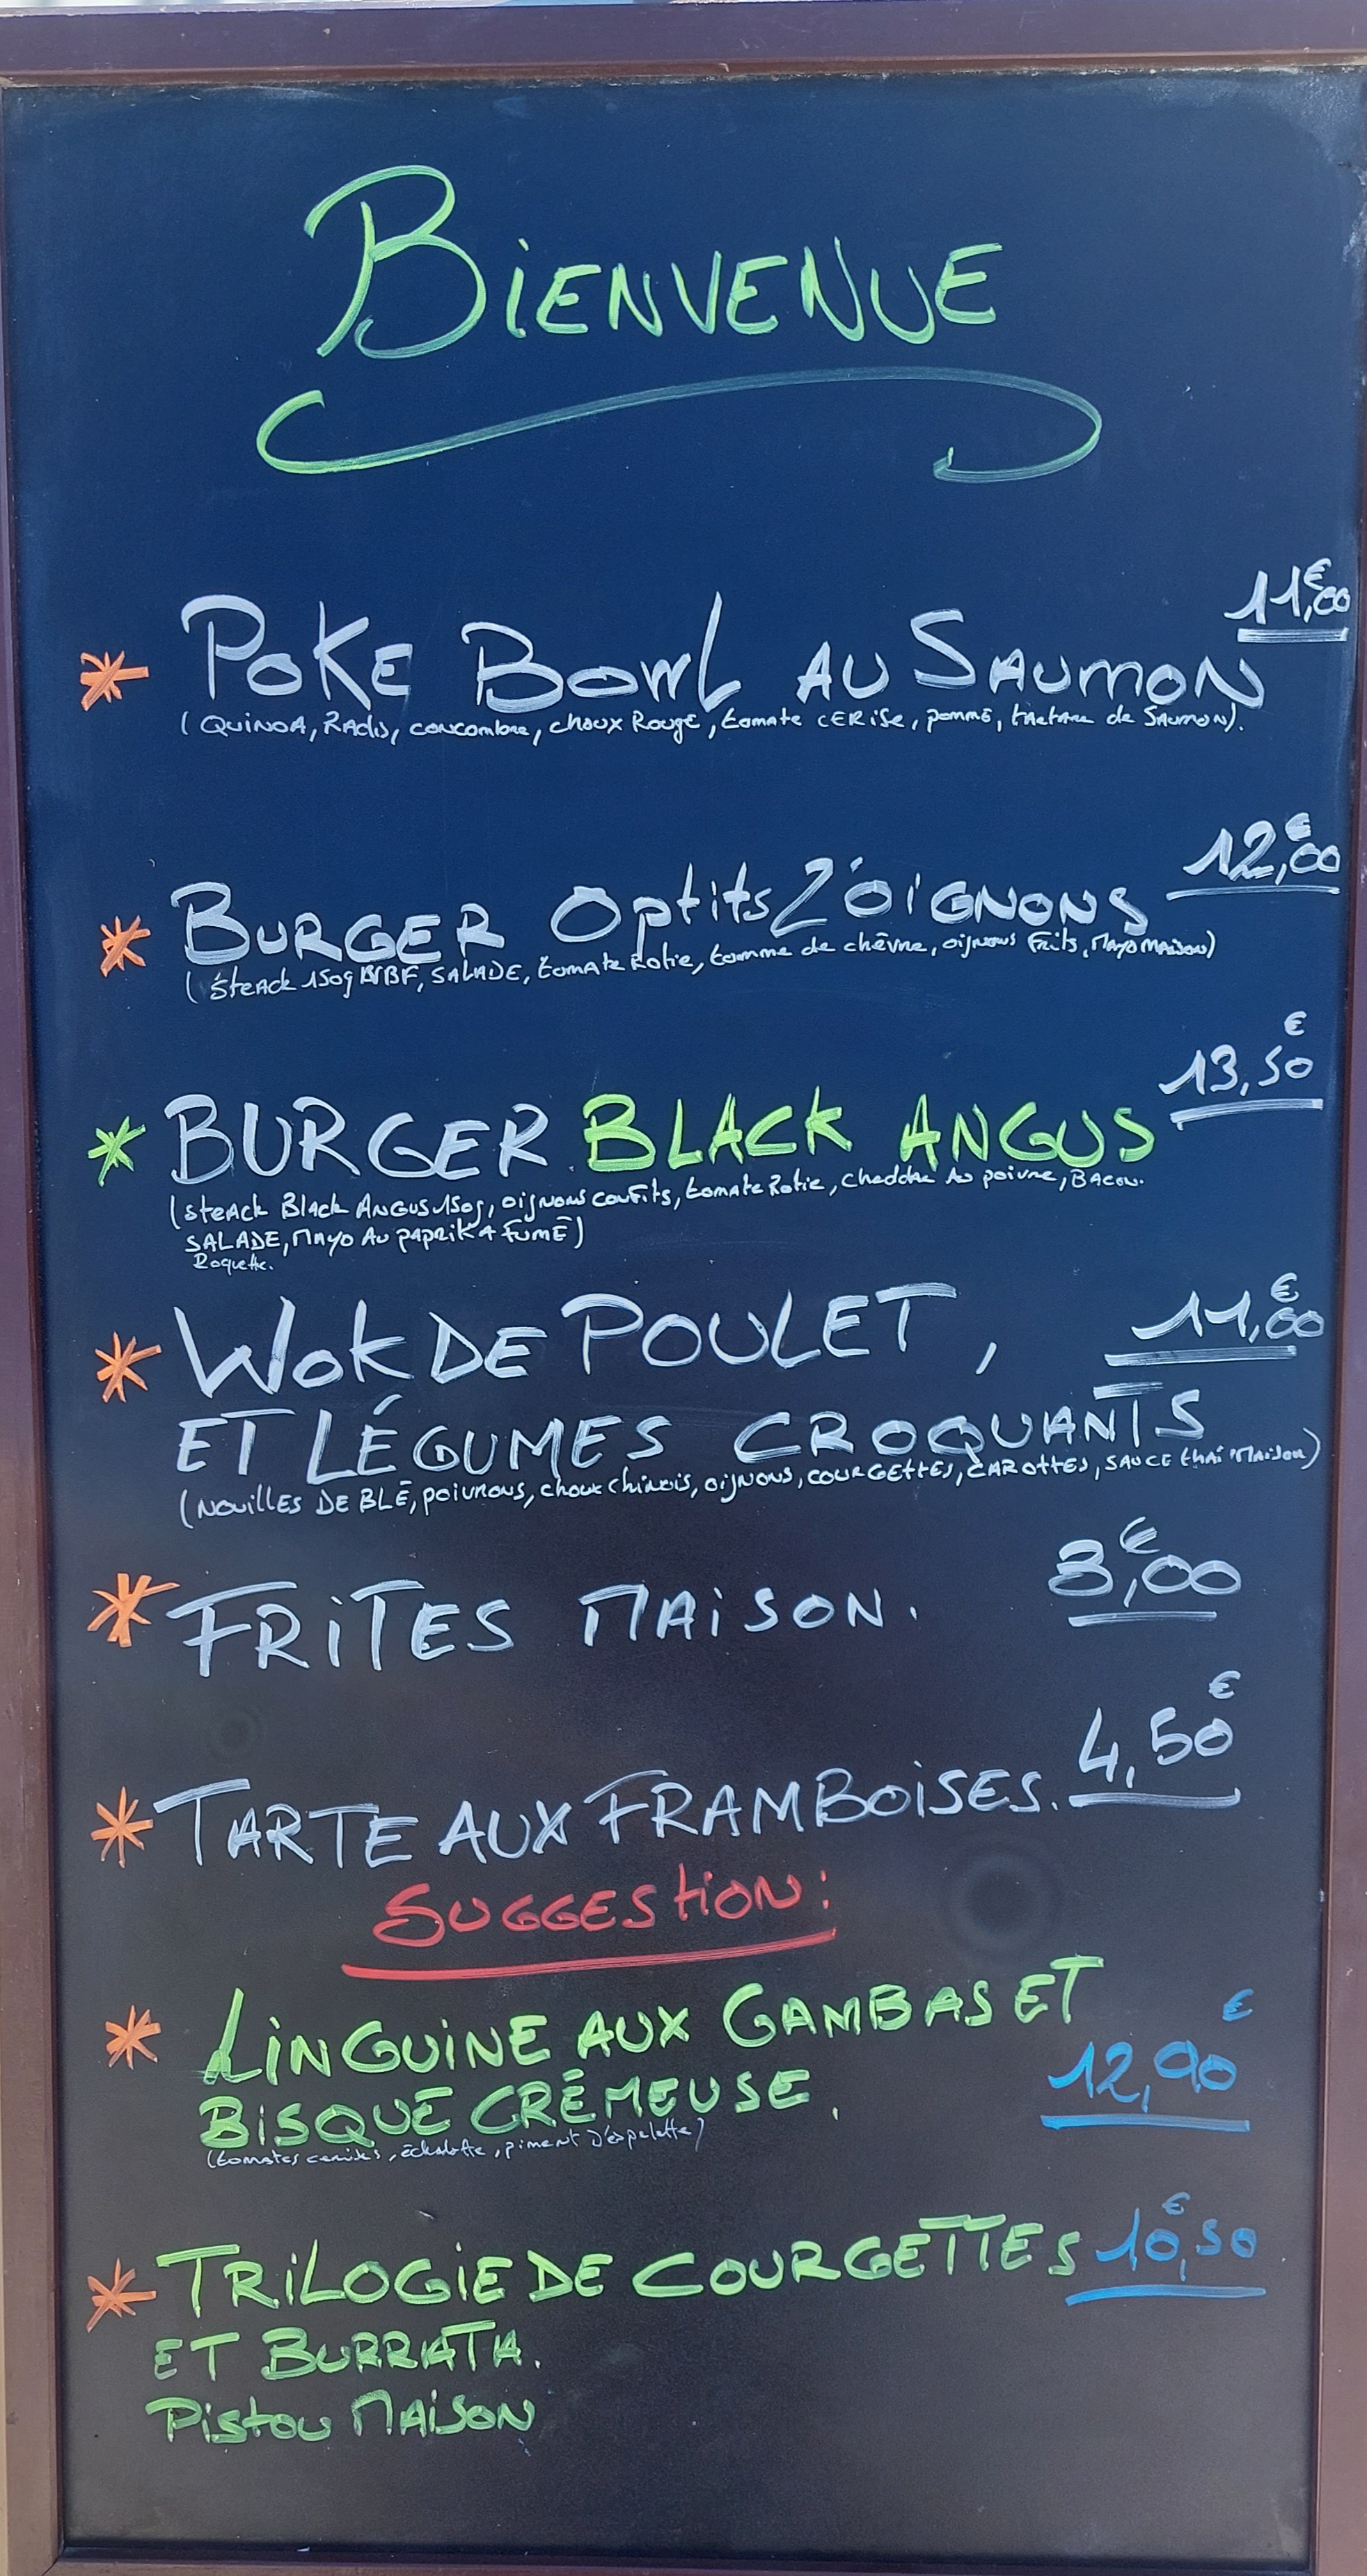 BiENVENUE
POKE BOWL AU SAUMON 11,00€
(QUINOA, RAdis, concombre, choux Rouge, tomate CERiSe, pomme, tartare de SAUMON).
BURGER Optits Z'OIGNONS 12,00€
(Steack 150g VBF, SALADE, tomate Rotie, tomme de chèvre, oignons Frits, MAYO MAiSon)
BURGER BLACK ANGUS 13,50€
(steack Black ANGUS 150g, oignons confits, tomate Rotie, cheddar Au poivre, BACON.
SALADE, MAYO Au pApRiKA fumé)
Roquette.
WOK DE POULET, 11,00€
ET LÉGUMES CROQUANTS
(NouillES DE BLÉ, poivrons, choux chinois, oignons, COURGETTES, CAROTTES, SAUCE thaï MAiSon)
FRiTES MAiSON. 3,00€
TARTE AUX FRAMBOiSES. 4,50€
SUGGEStiON:
LiNGUiNE AUX GAMBAS ET
BiSQUE CRÉMEUSE. 12,90€
(tomates cerises, échalotte, piment d'espelette)
TRiLOGiE DE COURGETTES 10,50€
ET BURRATA.
Pistou MAiSON